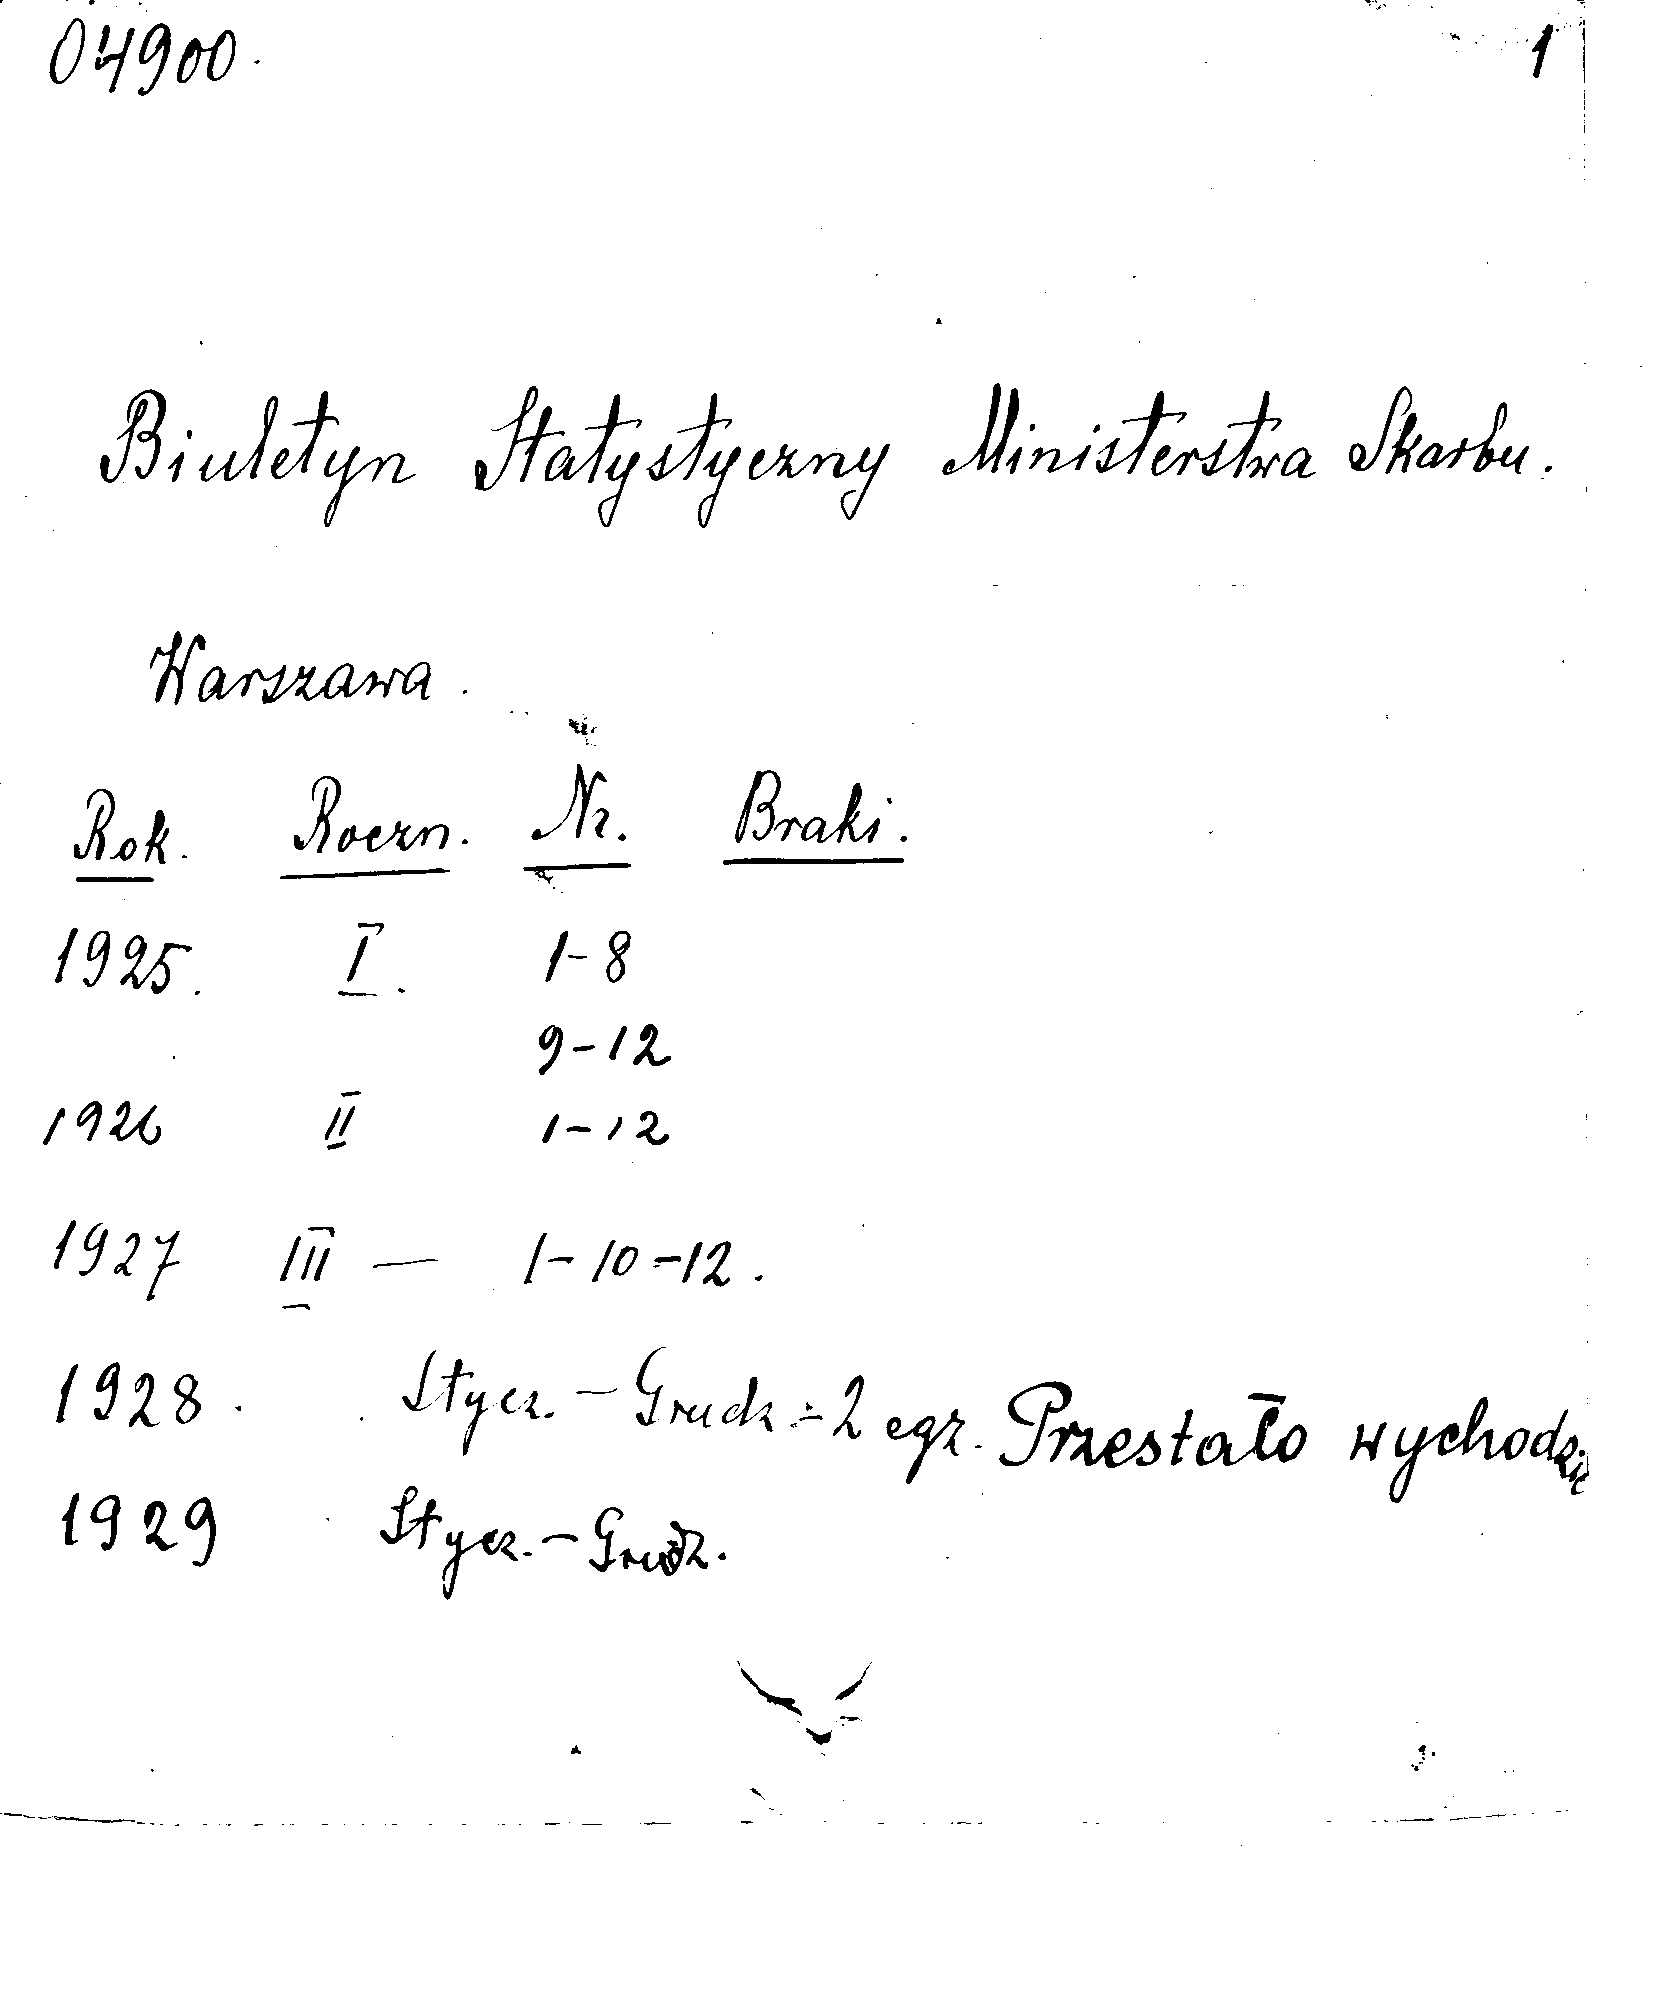 04900. 1
Biuletyn Statystyczny Ministerstwa Skarbu.
Warszawa.
Rok. Roczn. Nr. Braki.
1925. I. 1-8
9-12
1926 II 1-12
1927 III — 1-10-12.
1928. Stycz. - Grudz - 2 egz. Przestało wychodzić
1929 Stycz. - Grudz.